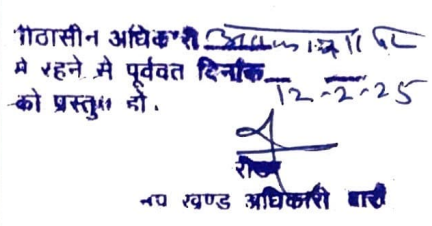 पीठासीन अधिकारी
में रहने से पूर्ववत दिनांक 12-2-25
को प्रस्तुत हो.
उप खण्ड अधिकारी बारी